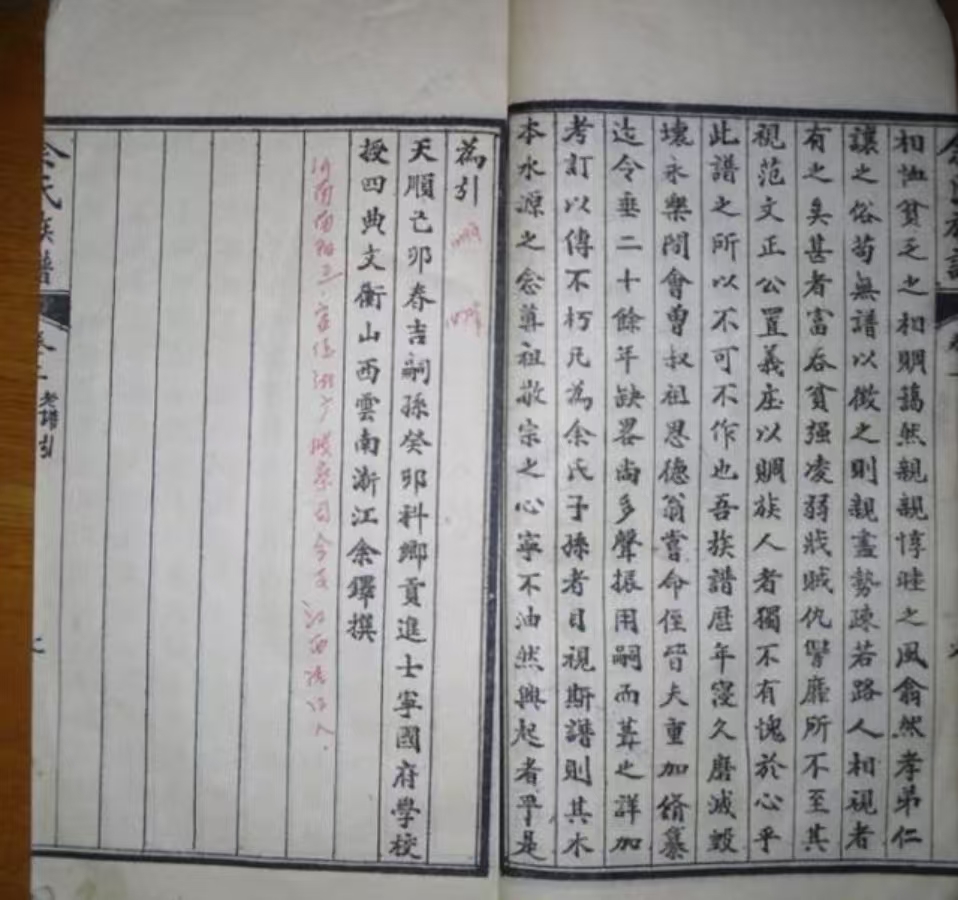 相恤貧乏之相賙藹然親親惇睦之風翕然孝弟仁
讓之俗苟無譜以徵之則親盡勢疎若路人相視者
有之矣甚者富吞貧强凌弱戕賊仇讐靡所不至其
視范文正公置義庄以賙族人者獨不有愧於心乎
此譜之所以不可不作也吾族譜歷年寖久磨滅毀
壞永樂間會曾叔祖思德翁嘗命侄晉夫重加脩纂
迄今垂二十餘年缺畧尚多聲振用嗣而葺之詳加
考訂以傳不朽凡為余氏子孫者目視斯譜則其木
本水源之念尊祖敬宗之心寧不油然興起者乎是
為引
天順己卯春吉嗣孫癸卯科鄉貢進士寧國府學校
授四典文衡山西雲南浙江余鐸撰
余氏族譜
老譜引